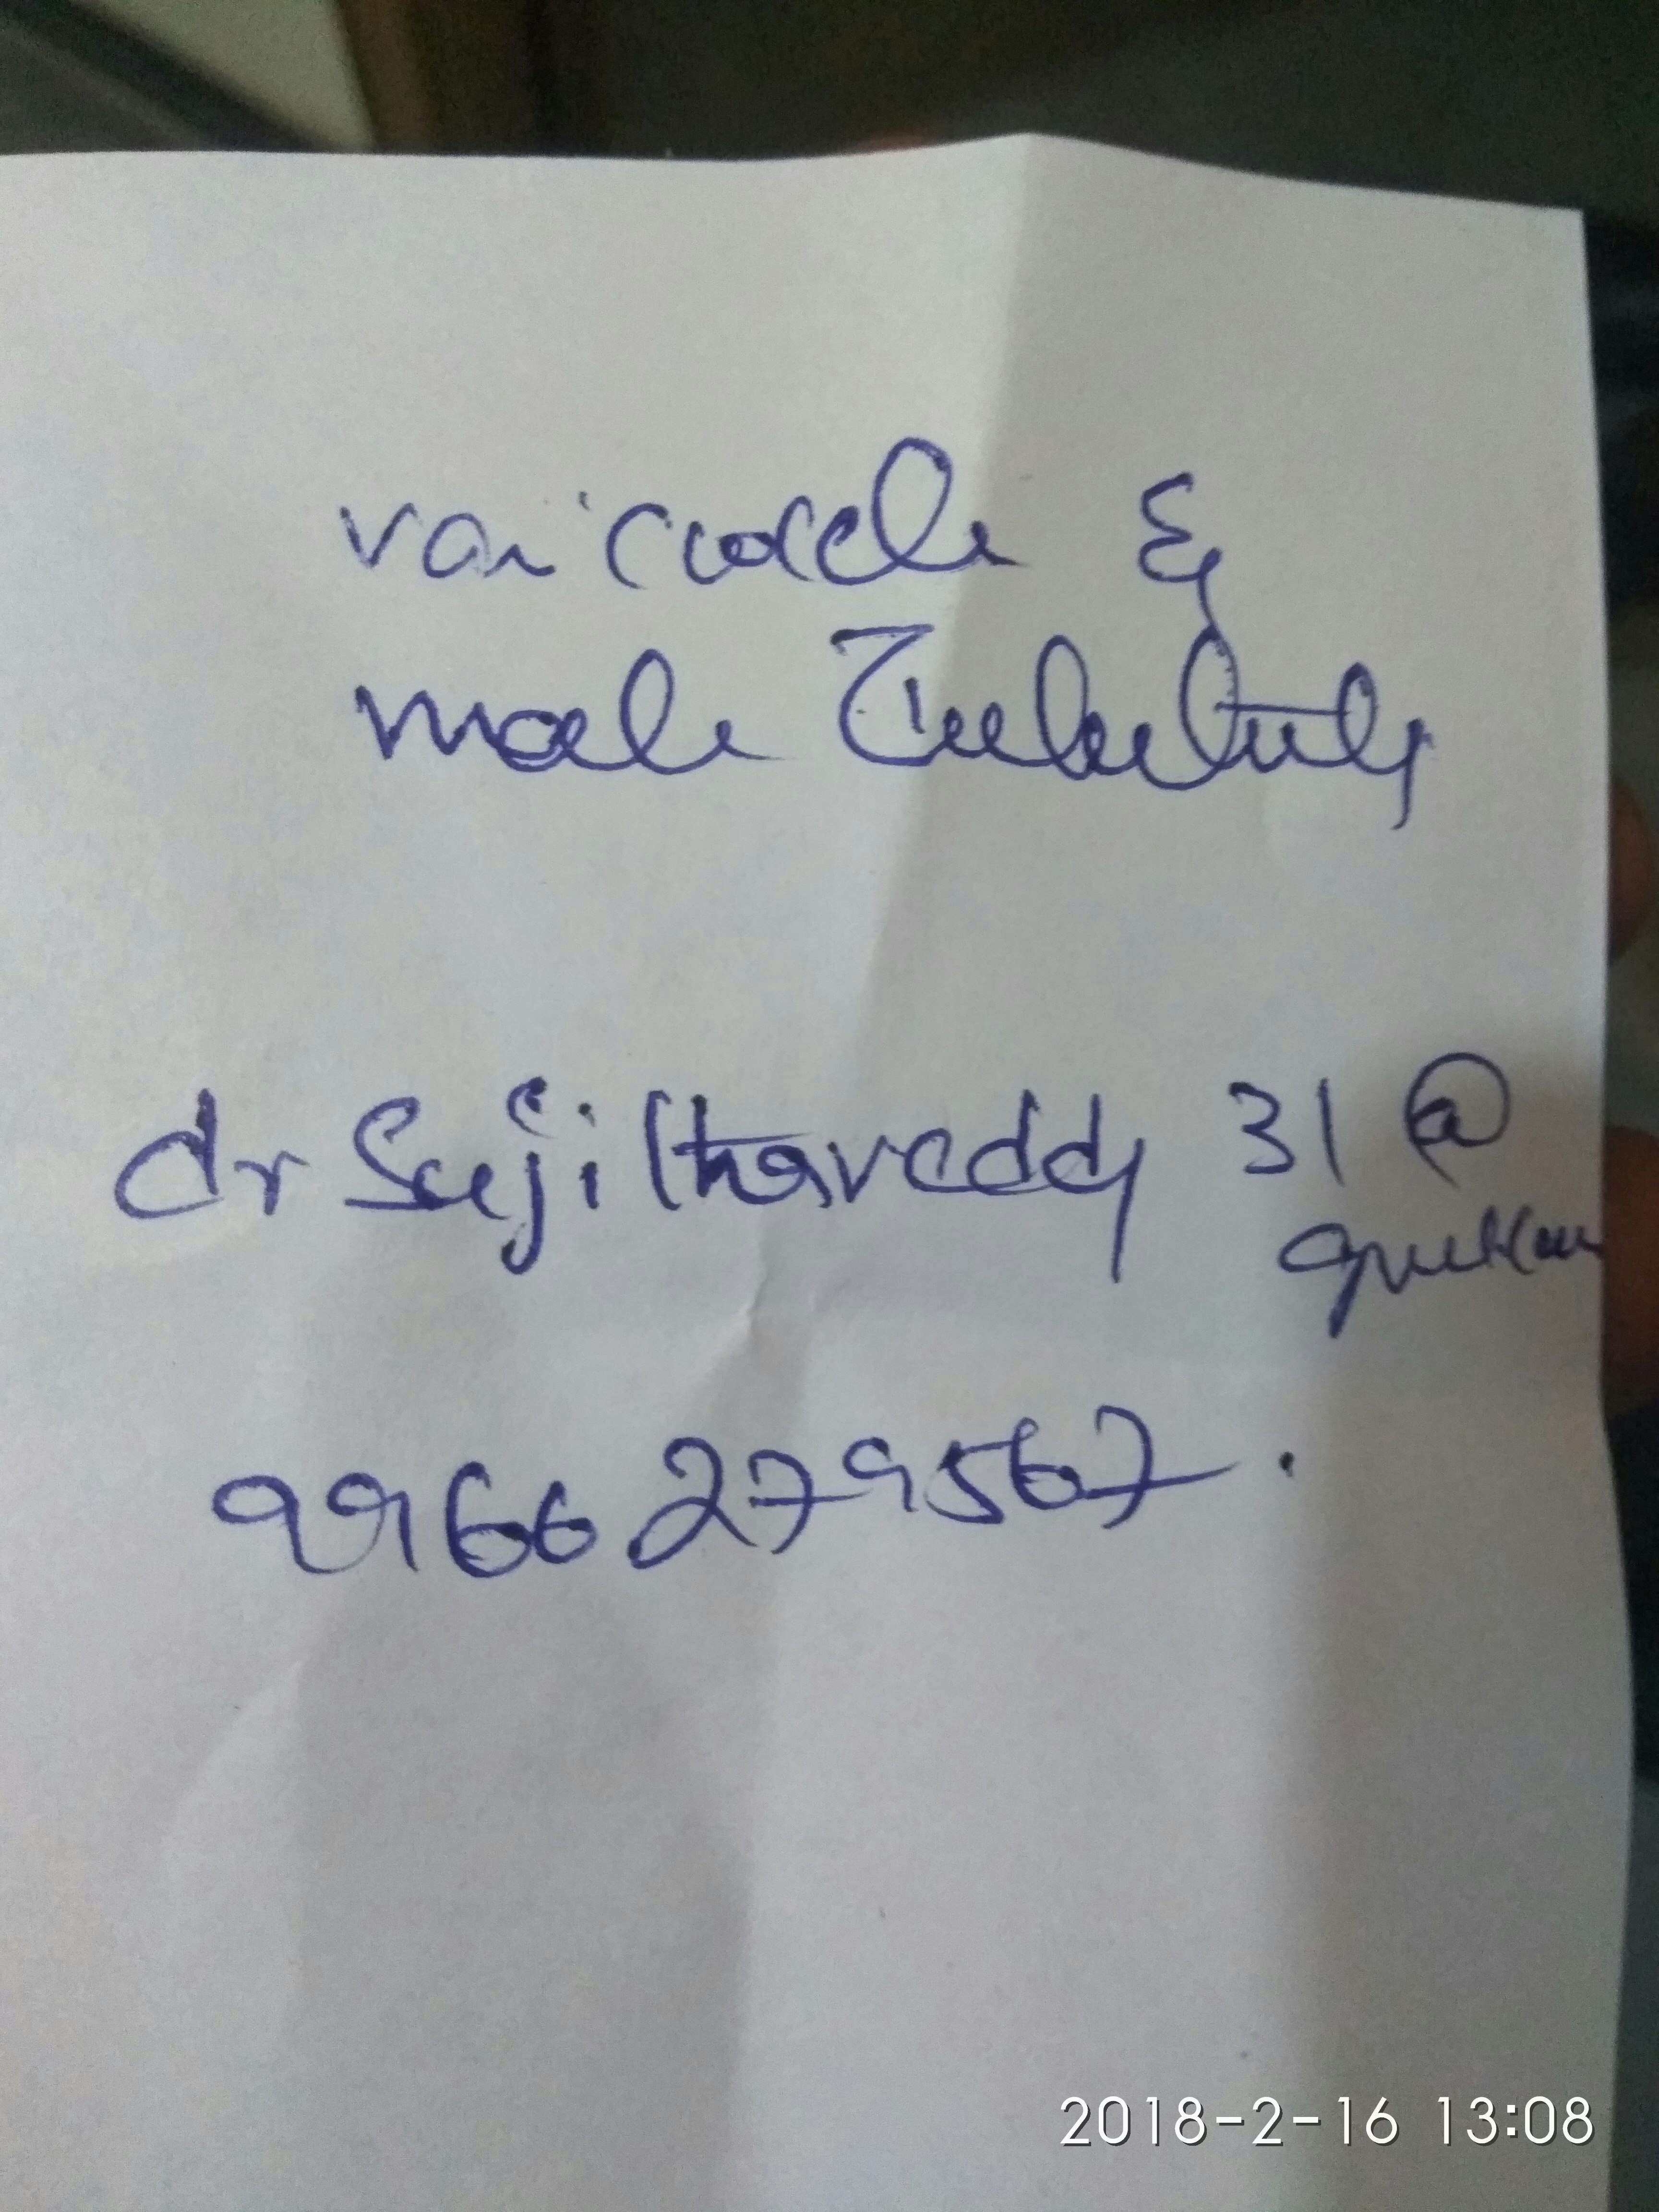 varicocele &
male Infertility
dr Sujithareddy 31 @
9966279567.
2018-2-16 13:08